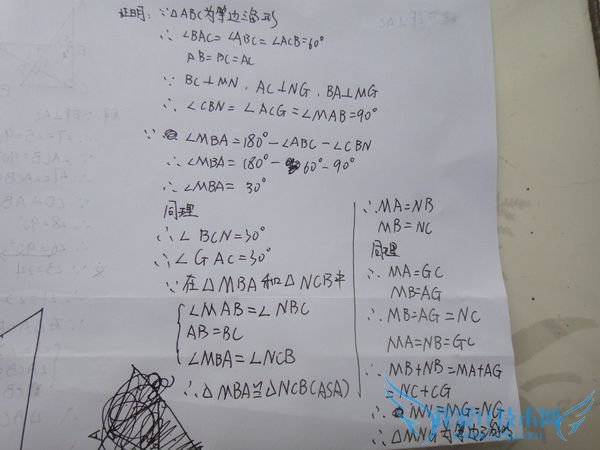 证明：∵△ABC为等边三角形
∴∠BAC=∠ABC=∠ACB=60°
AB=BC=AC
∵ BC⊥MN，AC⊥NG，BA⊥MG
∴ ∠CBN=∠ACG=∠MAB=90°
∵ ∠MBA=180°-∠ABC-∠CBN
∴ ∠MBA=180°-60°-90°
∴ ∠MBA=30°
同理
∴∠BCN=30°
∴∠GAC=30°
∵在△MBA和△NCB中
∠MAB=∠NBC
AB=BC
∠MBA=∠NCB
∴△MBA≌△NCB(ASA)
∴MA=NB
MB=NC
同理
∴MA=GC
MB=AG
∴MB=AG=NC
MA=NB=GC
∴MB+NB=MA+AG
=NC+CG
∴MN=MG=NG
∴△MNG为等边三角形